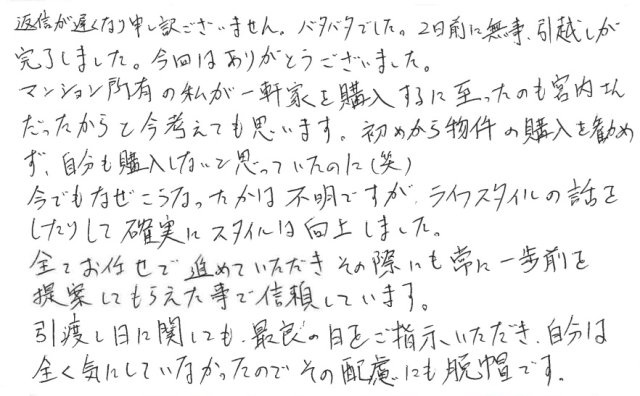 返信が遅くなり申し訳ございません。バタバタでした。2日前に無事、引越しが
完了しました。今回はありがとうございました。
マンション所有の私が一軒家を購入するに至ったのも宮内さん
だったからと今考えても思います。初めから物件の購入を勧め
ず、自分も購入しないと思っていたのに(笑)
今でもなぜこうなったかは不明ですが、ライフスタイルの話を
したりして確実にスタイルは向上しました。
全てお任せで進めていただきその際にも常に一歩前を
提案してもらえた事で信頼しています。
引渡し日に関しても、最良の日をご指示いただき、自分は
全く気にしていなかったのでその配慮にも脱帽です。